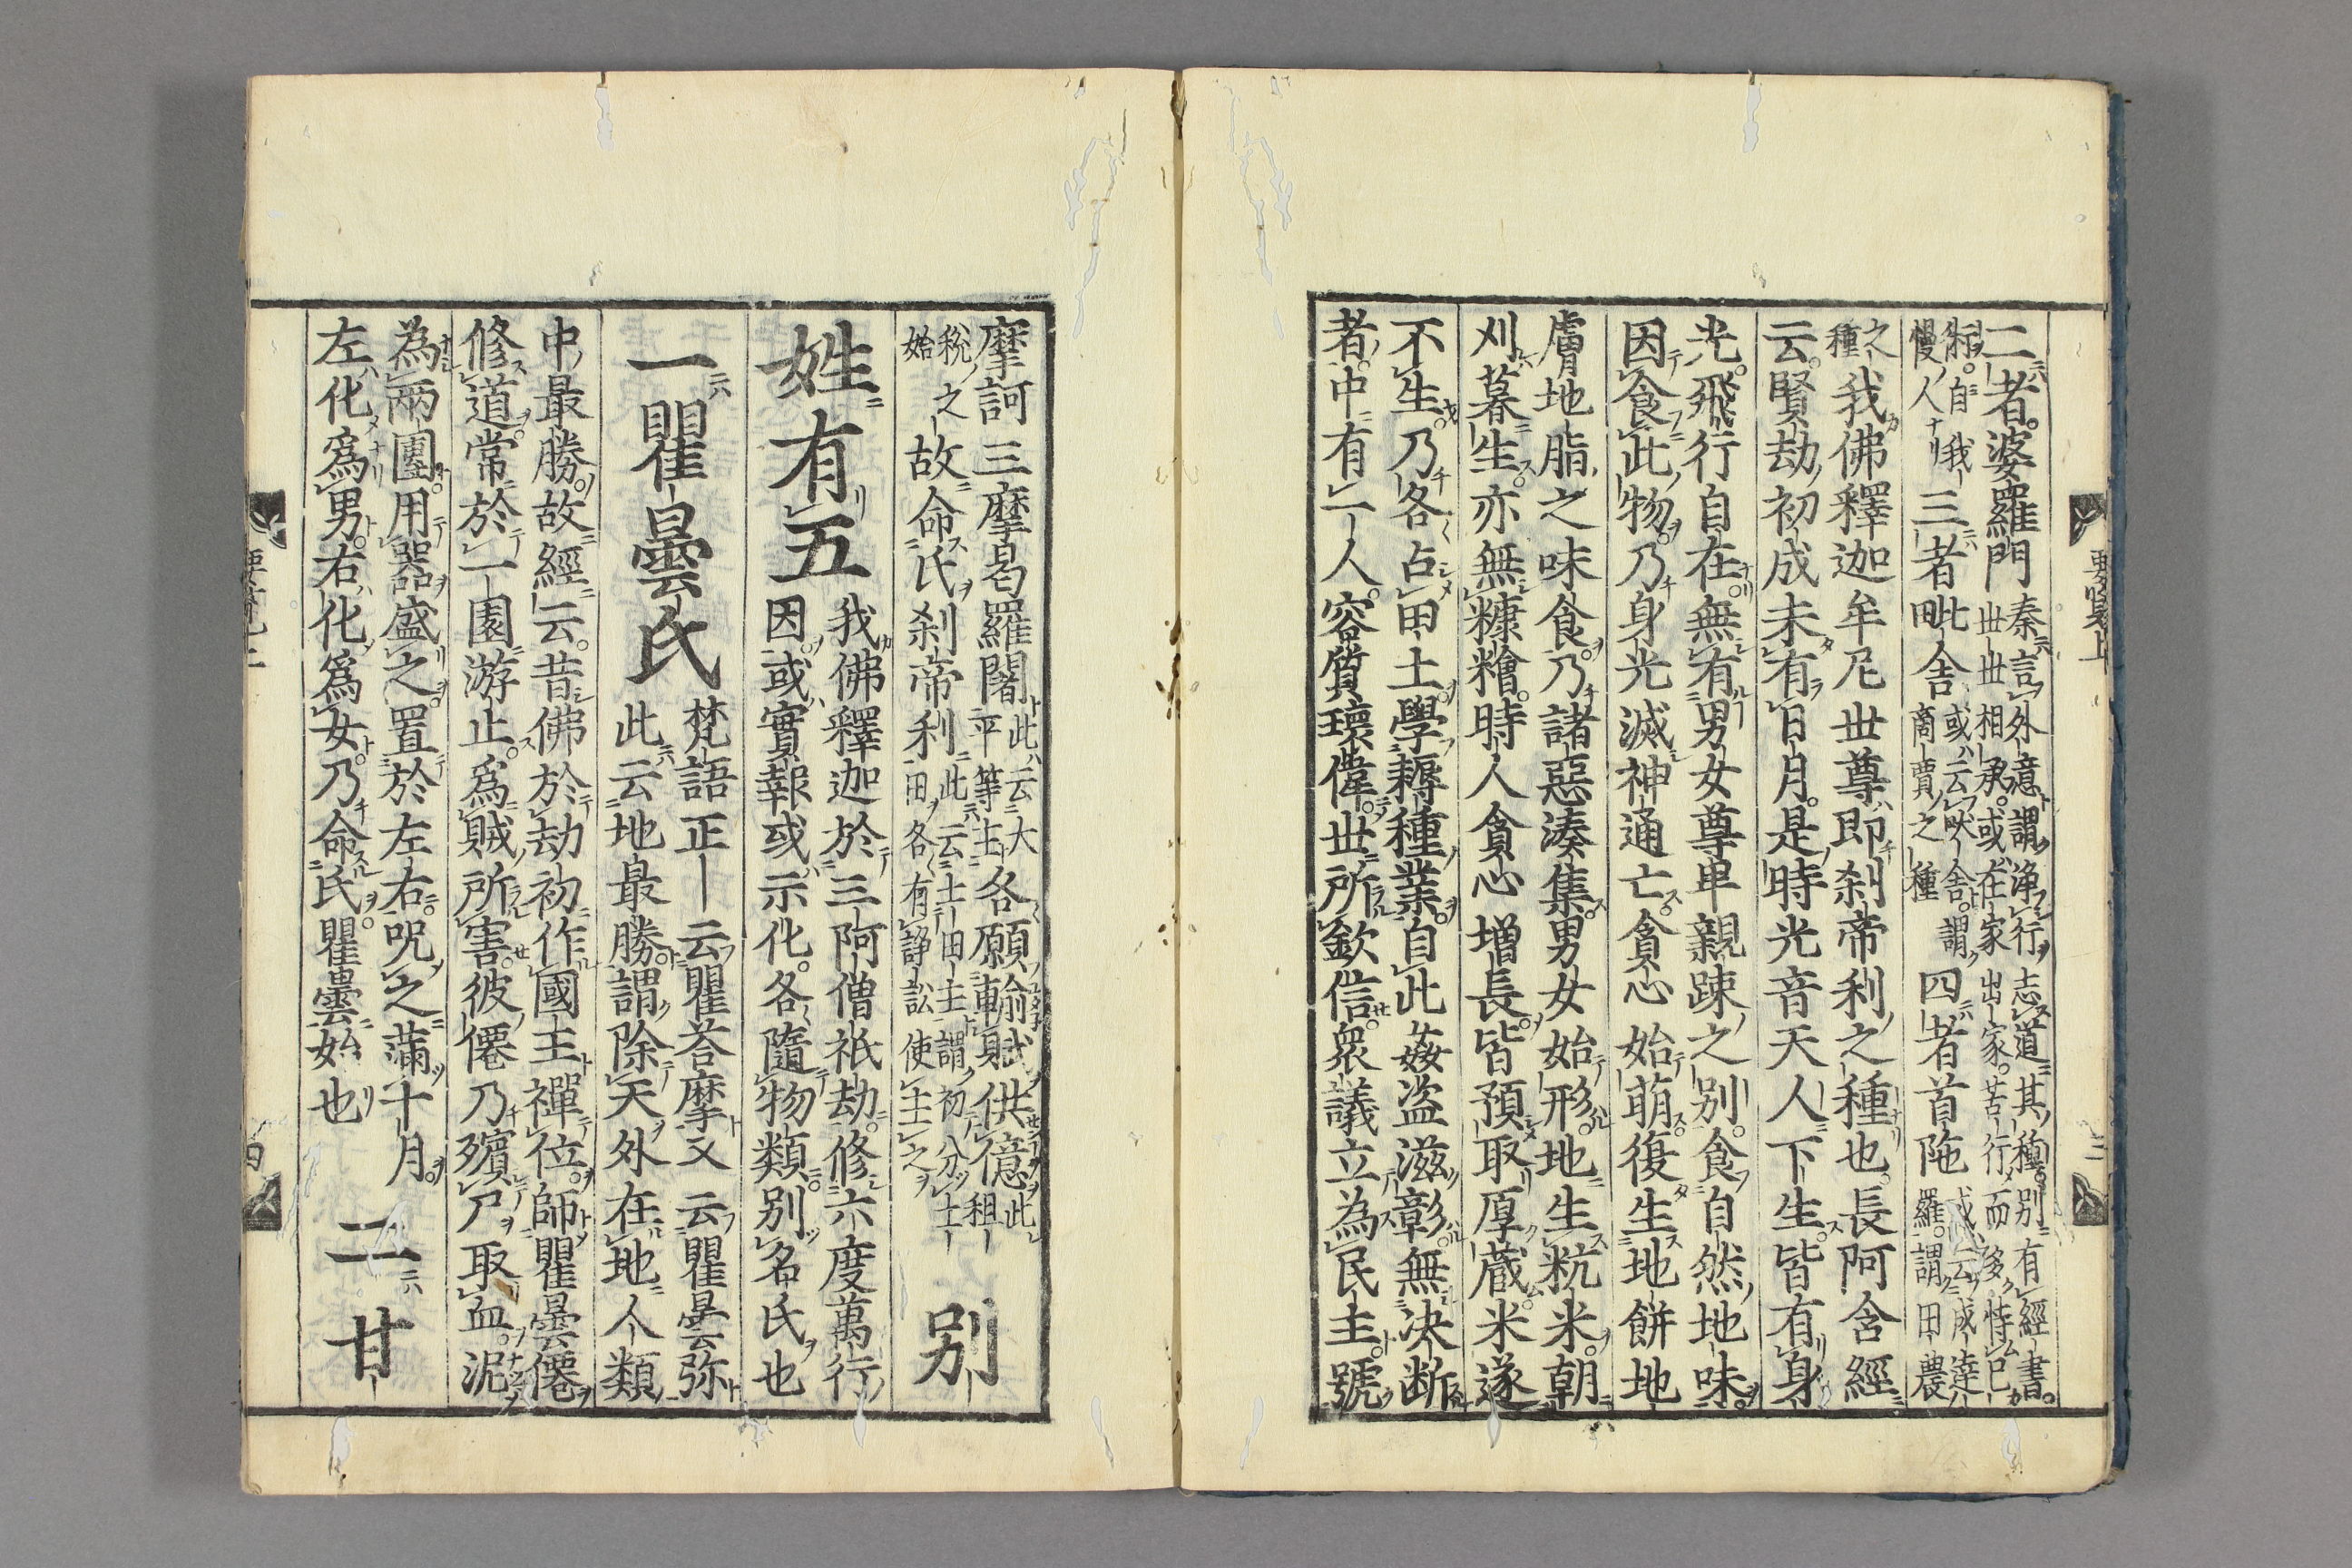 二者婆羅門秦言外意謂浄行志道其種別有經書
世世相承或在家出家苦行而多恃己
術自我慢人三者毗舍或云吠舍謂商賈之種四者首陁或云戍達羅謂田農
之種我佛釋迦牟尼世尊即刹帝利之種也長阿含經
云賢劫初成未有日月是時光音天人下生皆有身
光飛行自在無有男女尊卑親踈之別食自然地味
因食此物乃身光滅神通亡貪心始萌復生地餅地
膚地脂之味食乃諸惡湊集男女始形地生粇米朝
刈暮生亦無糠糩時人貪心增長皆預取厚蔵米遂
不生乃各占田土學耨種業自此姦盗滋彰無决断
者中有一人容質瓌偉世所欽信衆議立為民主號
要覽上
三
摩訶三摩曷羅闍此云大平等主各願輸賦供億此租
稅之始故命氏刹帝利此云土田主謂初分土田各有諍訟使主之別
姓有五我佛釋迦於三阿僧祇劫修六度萬行
因或實報或示化各隨物類別名氏也
一瞿曇氏梵語正云瞿荅摩又云瞿曇弥
此云地最勝謂除天外在地人類
中最勝故經云昔佛於劫初作國王禪位師瞿曇僊
修道常於一園游止爲賊所害彼僊乃殯尸取血泥
為兩團用器盛之置於左右呪之滿十月
左化爲男右化爲女乃命氏瞿曇始也二甘
四